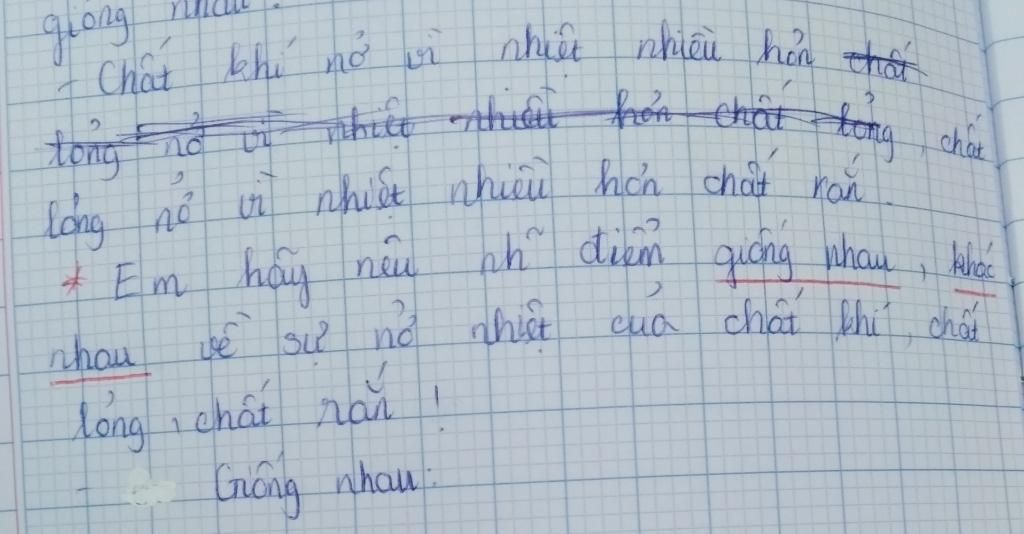 giống nhau.
- Chất khí nở vì nhiệt nhiều hơn chất
lỏng nở vì nhiệt nhiều hơn chất lỏng, chất
lỏng nở vì nhiệt nhiều hơn chất rắn.
* Em hãy nêu nh~ điểm giống nhau, khác
nhau về sự nở nhiệt của chất khí, chất
lỏng, chất rắn!
- Giống nhau: